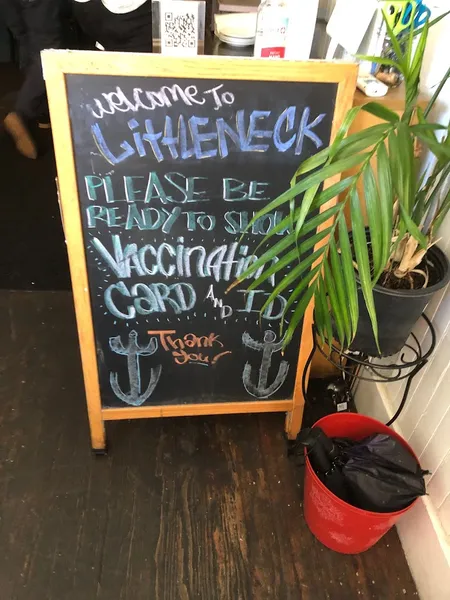 Welcome To
LittleNeck
PLEASE BE
READY TO SHOW
VACCINATION
CARD AND ID
Thank
you!